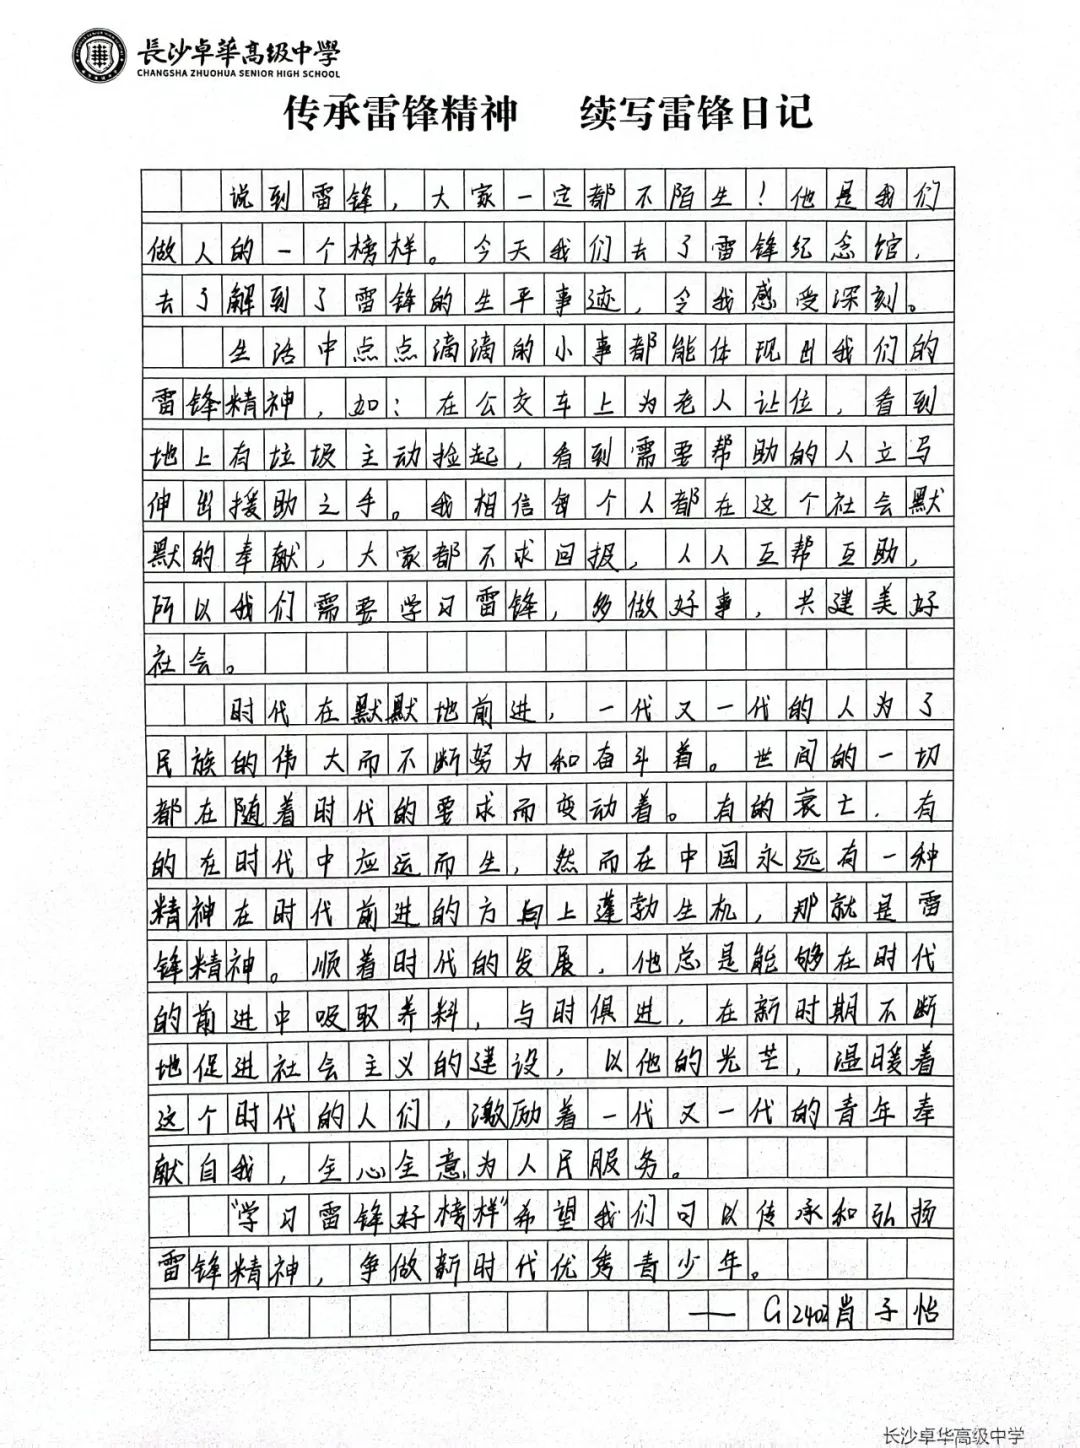 長沙卓華高级中學
CHANGSHA ZHUOHUA SENIOR HIGH SCHOOL
传承雷锋精神 续写雷锋日记
说到雷锋，大家一定都不陌生！他是我们
做人的一个榜样。今天我们去了雷锋纪念馆，
去了解到了雷锋的生平事迹，令我感受深刻。
生活中点点滴滴的小事都能体现出我们的
雷锋精神，如：在公交车上为老人让位，看到
地上有垃圾主动捡起，看到需要帮助的人立马
伸出援助之手。我相信每个人都在这个社会默
默的奉献，大家都不求回报，人人互帮互助，
所以我们需要学习雷锋，多做好事，共建美好
社会。
时代在默默地前进，一代又一代的人为了
民族的伟大而不断努力和奋斗着。世间的一切
都在随着时代的要求而变动着。有的衰亡，有
的在时代中应运而生，然而在中国永远有一种
精神在时代前进的方向上蓬勃生机，那就是雷
锋精神。顺着时代的发展，他总是能够在时代
的前进中吸取养料，与时俱进，在新时期不断
地促进社会主义的建设，以他的光芒，温暖着
这个时代的人们，激励着一代又一代的青年奉
献自我，全心全意为人民服务。
“学习雷锋好榜样”希望我们可以传承和弘扬
雷锋精神，争做新时代优秀青少年。
——G2402肖子怡
长沙卓华高级中学